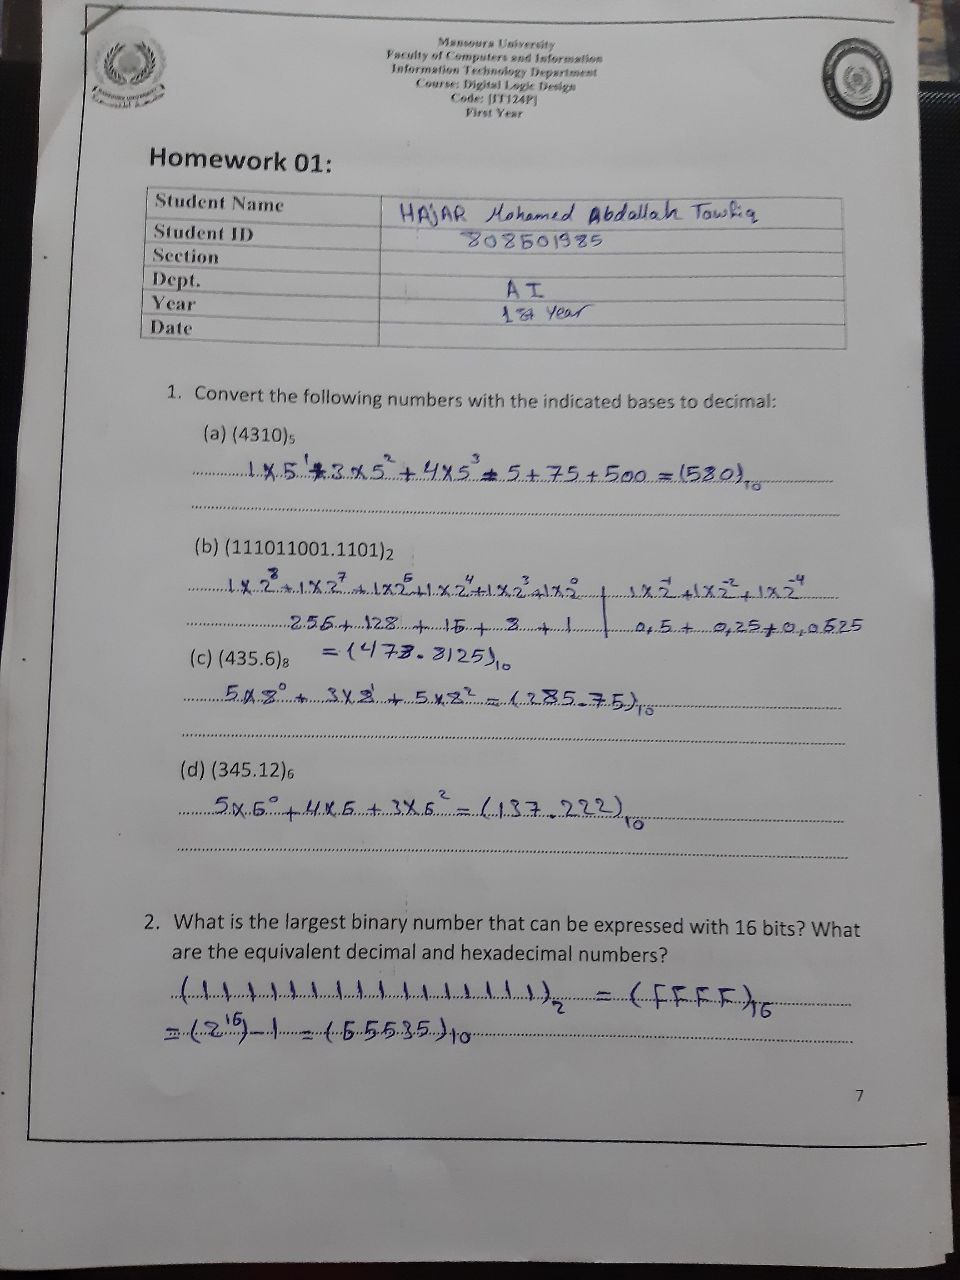 Mansoura University
Faculty of Computers and Information
Information Technology Department
Course: Digital Logic Design
Code: [IT124P]
First Year
Homework 01:
Student Name HAJAR Mohamed Abdallah Tawfiq
Student ID 808601985
Section
Dept. AI
Year 1st year
Date
1. Convert the following numbers with the indicated bases to decimal:
(a) (4310)₅
1×5¹+3×5²+4×5³=5+75+500=(580)₁₀
(b) (111011001.1101)₂
1×2⁸+1×2⁷+1×2⁶+1×2⁴+1×2³+1×2⁰ | 1×2⁻¹+1×2⁻²+1×2⁻⁴
256+128+16+8+1 | 0,5+0,25+0,0625
=(473.8125)₁₀
(c) (435.6)₈
5×8⁰+3×8¹+5×8²=(285.75)₁₀
(d) (345.12)₆
5×6⁰+4×6+3×6²=(137.222)₁₀
2. What is the largest binary number that can be expressed with 16 bits? What
are the equivalent decimal and hexadecimal numbers?
(1111111111111111)₂ = (FFFF)₁₆
=(2¹⁶)-1=(65535)₁₀
7